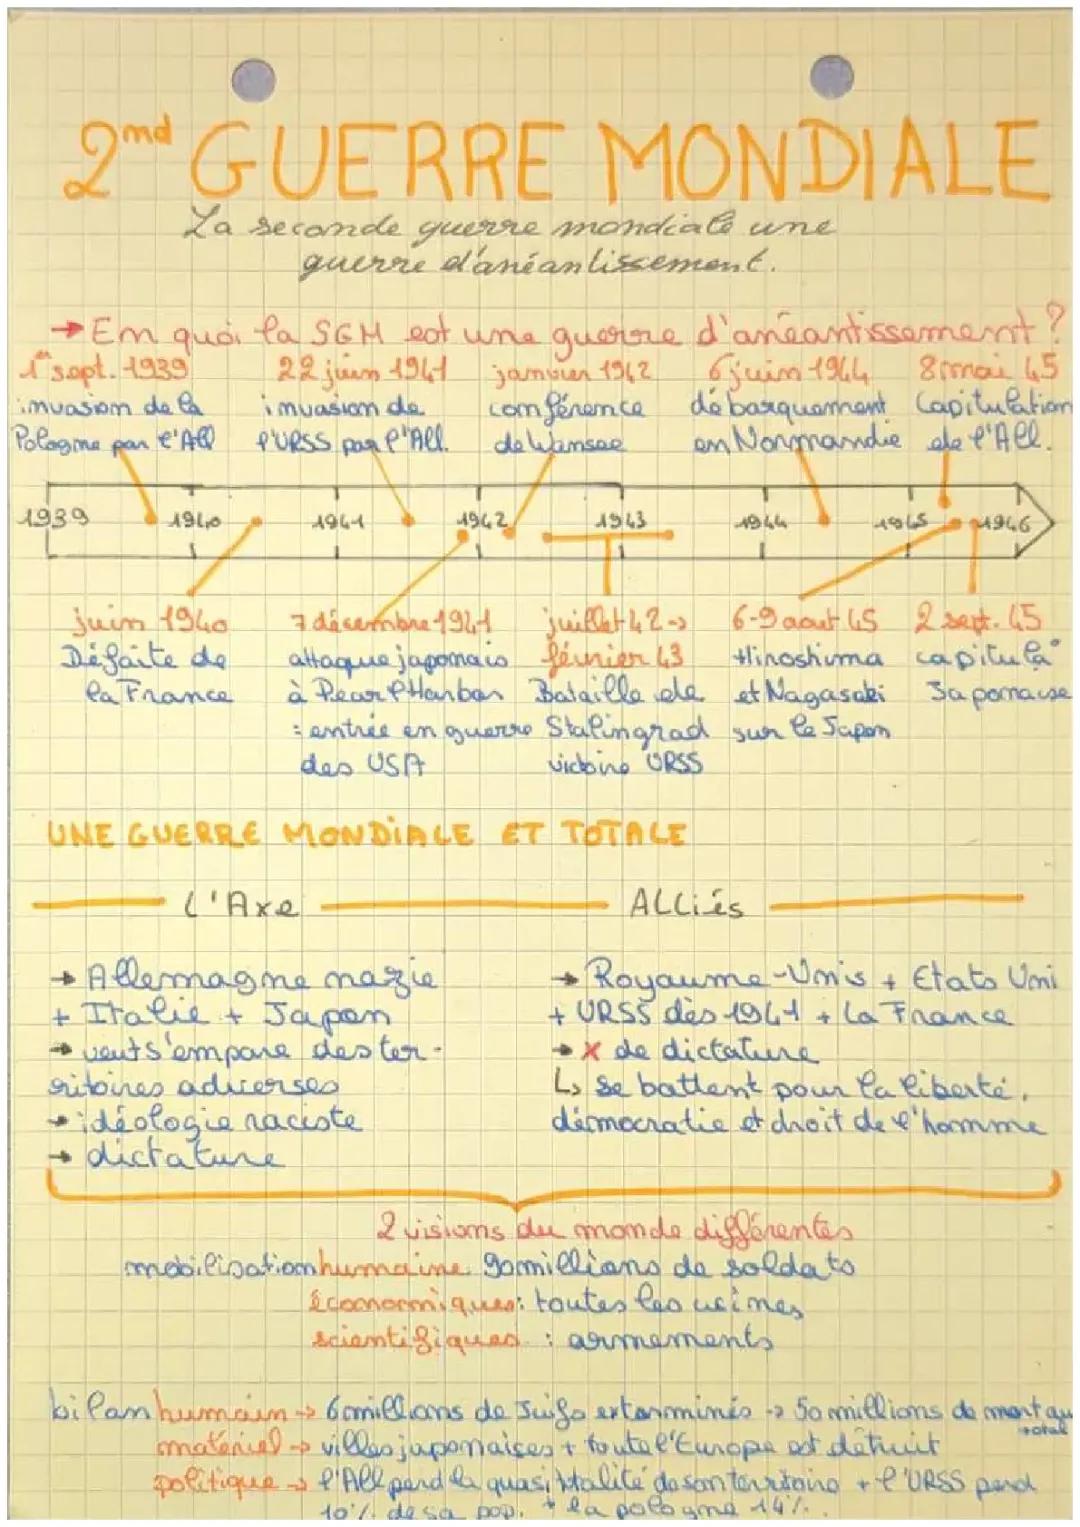 2nd GUERRE MONDIALE
La seconde guerre mondiale une
guerre d'anéantissement.
→ En quoi la SGM est une guerre d'anéantissement ?
1er sept. 1939
invasion de la
Pologne par l'All
22 juin 1941
invasion de
l'URSS par l'All.
janvier 1942
conférence
de Wansee
6 juin 1944
débarquement
en Normandie
8 mai 45
Capitulation
de l'All.
1939 1940 1941 1942 1943 1944 1945 1946
juin 1940
Défaite de
la France
7 décembre 1941
attaque japonais
à Pearl Harbor
: entrée en guerre
des USA
juillet 42 →
février 43
Bataille de
Stalingrad
victoire URSS
6-9 aout 45
Hiroshima
et Nagasaki
sur le Japon
2 sept. 45
capitula°
Japonaise
UNE GUERRE MONDIALE ET TOTALE
L'Axe
→ Allemagne nazie
+ Italie + Japon
→ veut s'empare des ter-
ritoires adverses
→ idéologie raciste
→ dictature
ALLiés
→ Royaume-Unis + Etats Uni
+ URSS dès 1941 + La France
→ X de dictature
↳ se battent pour la liberté,
démocratie et droit de l'homme
2 visions du monde différentes
mobilisation humaine. 90 millions de soldats
économiques: toutes les usines
scientifiques : armements
bilan humain → 6 millions de Juifs exterminés → 50 millions de mort au
total
matériel → villes japonaises + toute l'Europe est détruit
politique → l'All perd la quasi totalité de son territoire + l'URSS perd
10% de sa pop. + la pologne 14%.